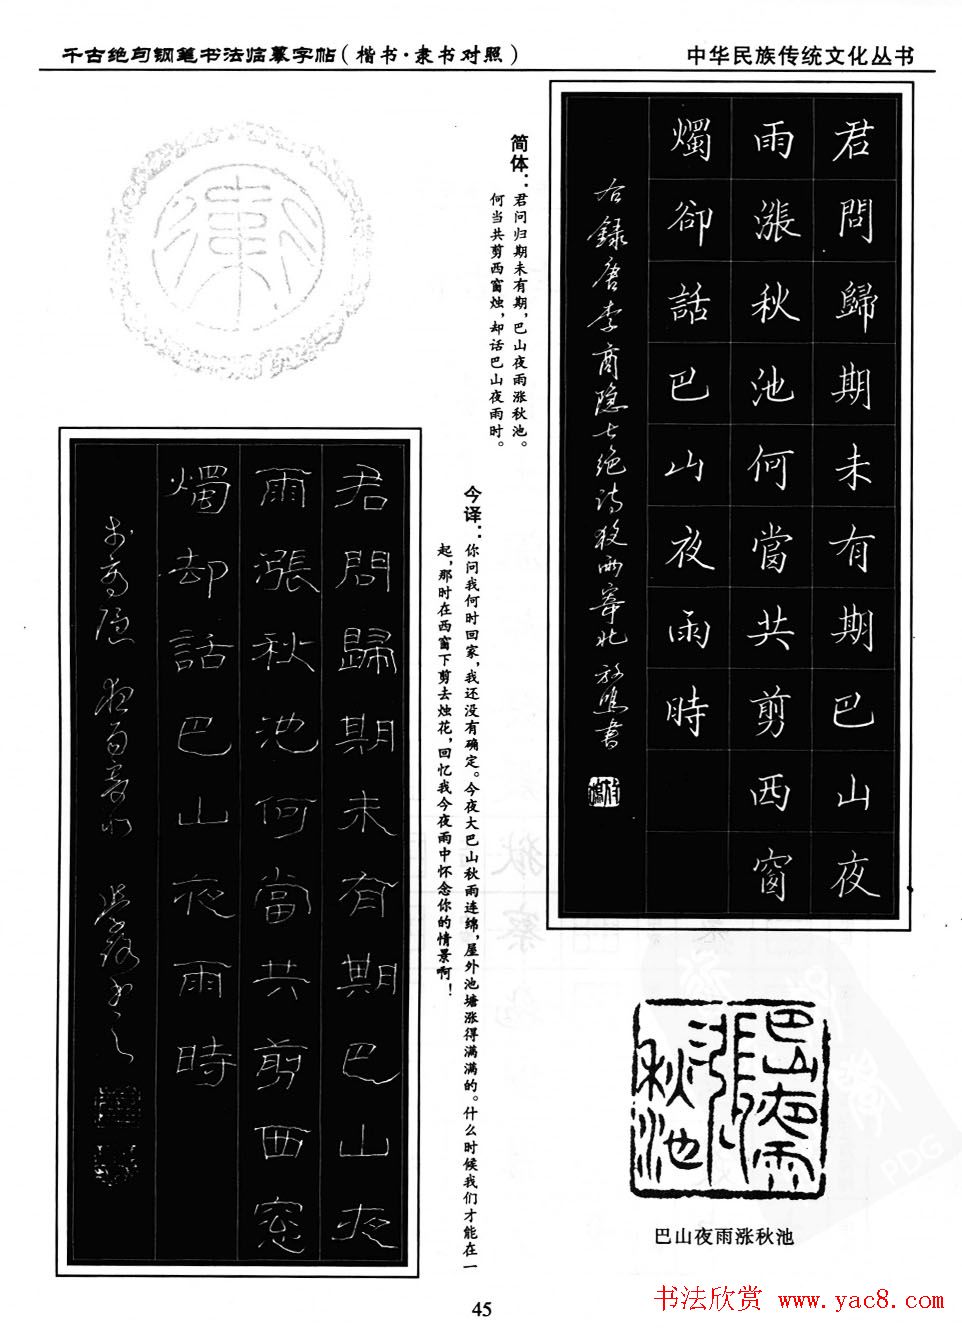 千古绝句钢笔书法临摹字帖（楷书·隶书对照）
中华民族传统文化丛书
君問歸期未有期巴山夜
雨漲秋池何當共剪西窗
燭卻話巴山夜雨時
右録唐李商隐七绝诗
书
简体：君问归期未有期，巴山夜雨涨秋池。
何当共剪西窗烛，却话巴山夜雨时。
今译：你问我何时回家，我还没有确定。今夜大巴山秋雨连绵，屋外池塘涨得满满的。什么时候我们才能在一
起，那时在西窗下剪去烛花，回忆我今夜雨中怀念你的情景啊！
君問歸期未有期巴山夜
雨漲秋池何當共剪西窓
燭却話巴山夜雨時
巴山夜雨
漲
秋池
巴山夜雨涨秋池
45
书法欣赏 www.yac8.com
PDG